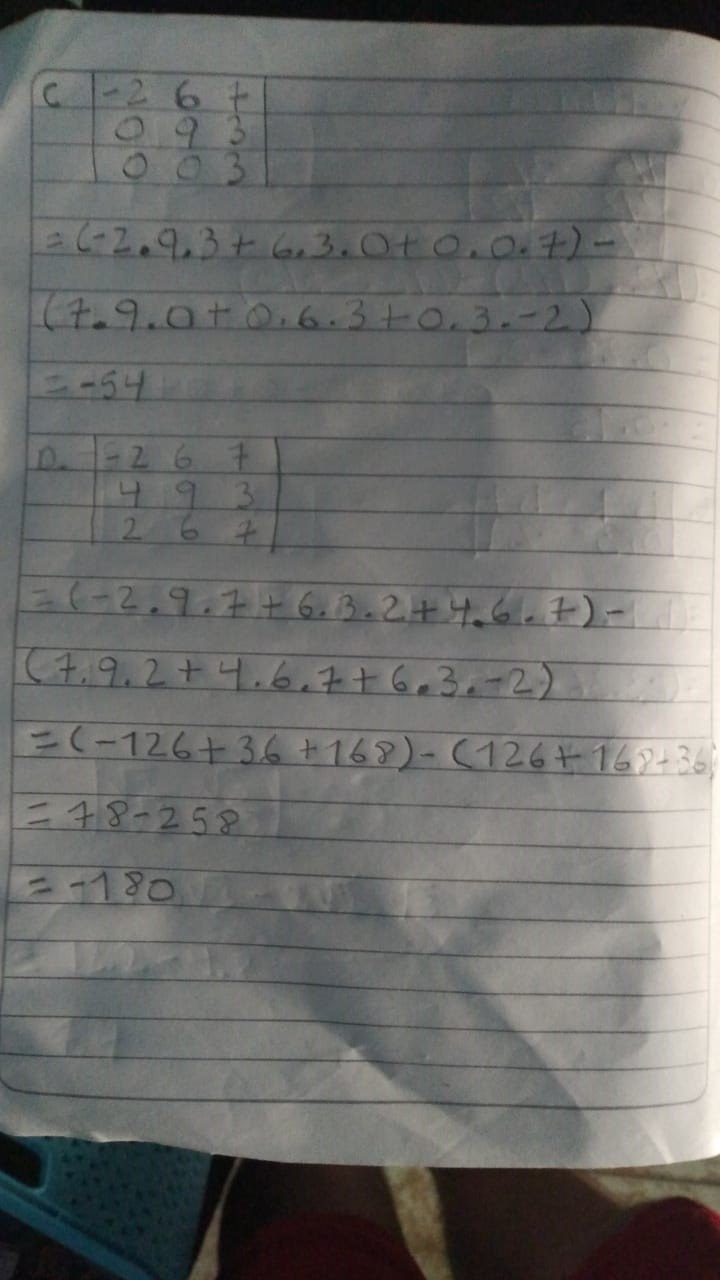 C |-2 6 7|
|0 9 3|
|0 0 3|
=(-2.9.3+6.3.0+0.0.7)-
(7.9.0+0.6.3+0.3.-2)
=-54
D. |-2 6 7|
|4 9 3|
|2 6 7|
=(-2.9.7+6.3.2+4.6.7)-
(7.9.2+4.6.7+6.3.-2)
=(-126+36+168)-(126+168-36)
=78-258
=-180